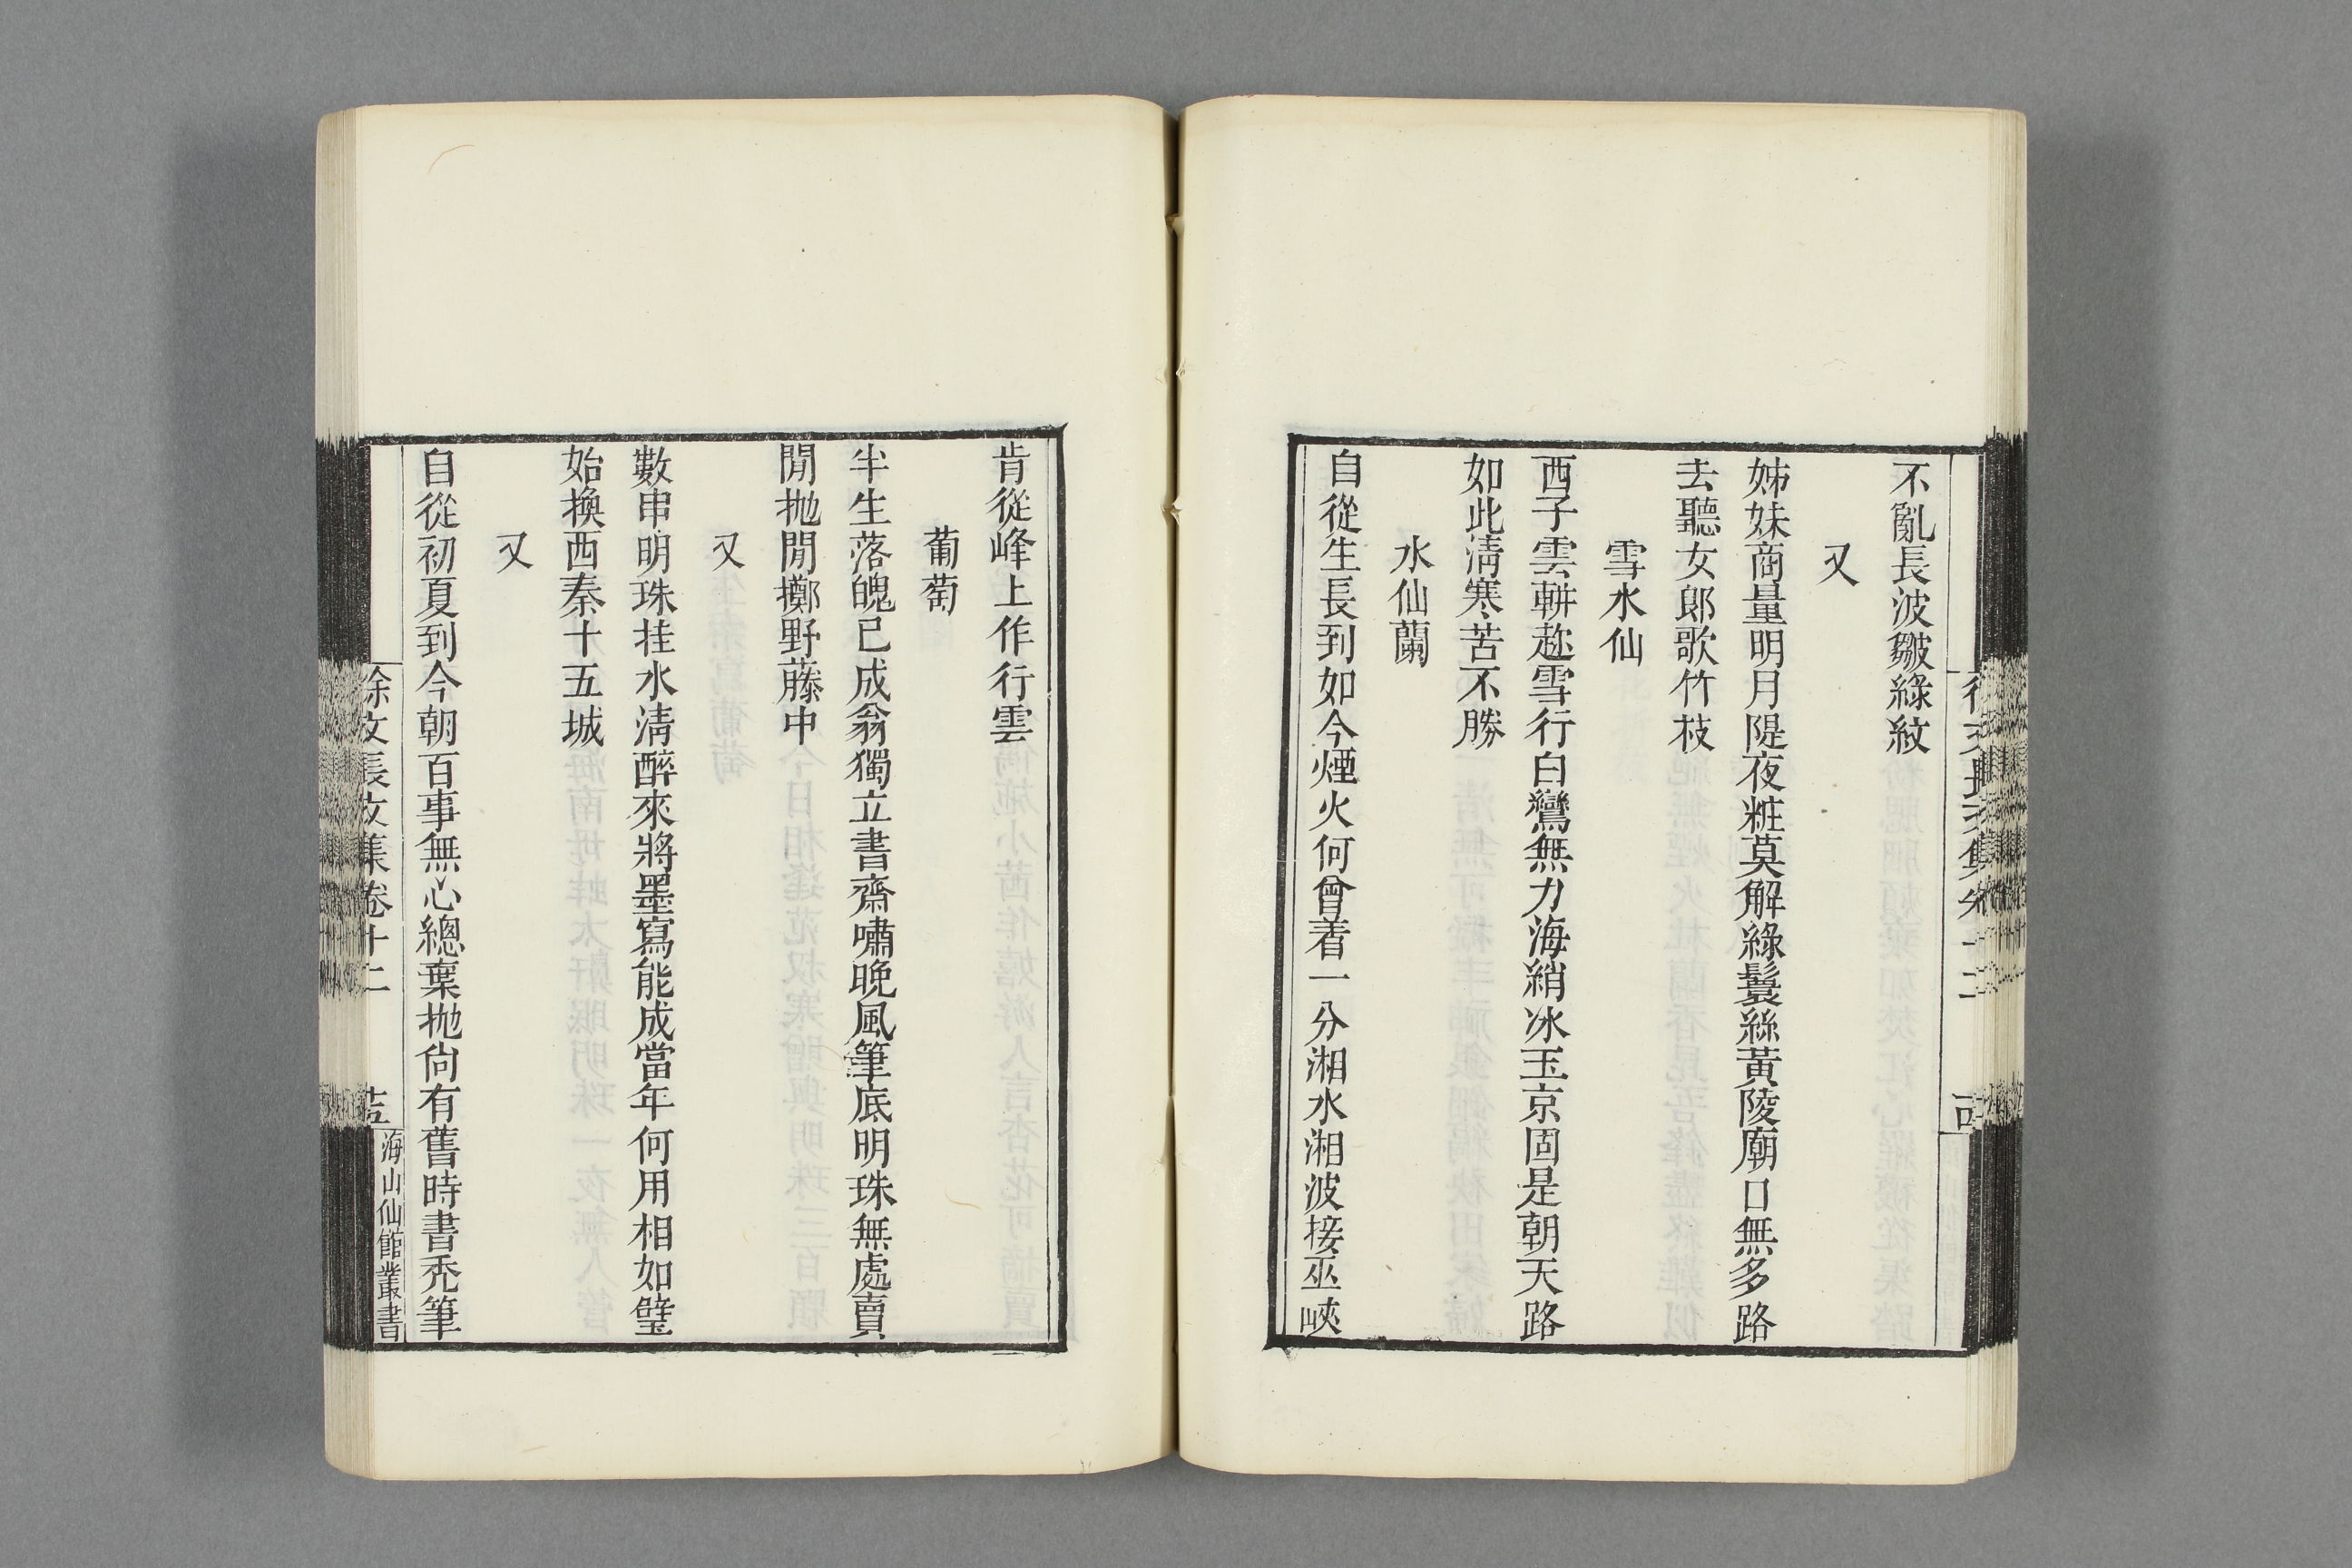 不亂長波皺綠紋
又
姊妹商量明月隄夜粧莫解綠鬟絲黃陵廟口無多路
去聽女郎歌竹枝
雪水仙
西子雲軿趂雪行白鸞無力海綃冰玉京固是朝天路
如此淸寒苦不勝
水仙蘭
自從生長到如今煙火何曾着一分湘水湘波接巫峽
肯從峰上作行雲
葡萄
半生落魄已成翁獨立書齋嘯晚風筆底明珠無處賣
閒拋閒擲野藤中
又
數串明珠挂水淸醉來將墨寫能成當年何用相如璧
始換西秦十五城
又
自從初夏到今朝百事無心總棄拋尙有舊時書禿筆
徐文長文集卷十二
海山仙館叢書